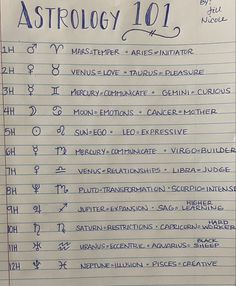 ASTROLOGY 101
By: Jill Nicole
1H ♂ ♈ MARS=TEMPER • ARIES=INITIATOR
2H ♀ ♉ VENUS=LOVE • TAURUS=PLEASURE
3H ☿ ♊ MERCURY=COMMUNICATE • GEMINI=CURIOUS
4H ☽ ♋ MOON=EMOTIONS • CANCER=MOTHER
5H ☉ ♌ SUN=EGO • LEO=EXPRESSIVE
6H ☿ ♍ MERCURY=COMMUNICATE • VIRGO=BUILDER
7H ♀ ♎ VENUS=RELATIONSHIPS • LIBRA=JUDGE
8H ♏ PLUTO=TRANSFORMATION • SCORPIO=INTENSE
9H ♃ ♐ JUPITER=EXPANSION • SAG=HIGHER LEARNING
10H ♄ ♑ SATURN=RESTRICTIONS • CAPRICORN=HARD WORKER
11H ♅ ♒ URANUS=ECCENTRIC • AQUARIUS=BLACK SHEEP
12H ♆ ♓ NEPTUNE=ILLUSION • PISCES=CREATIVE